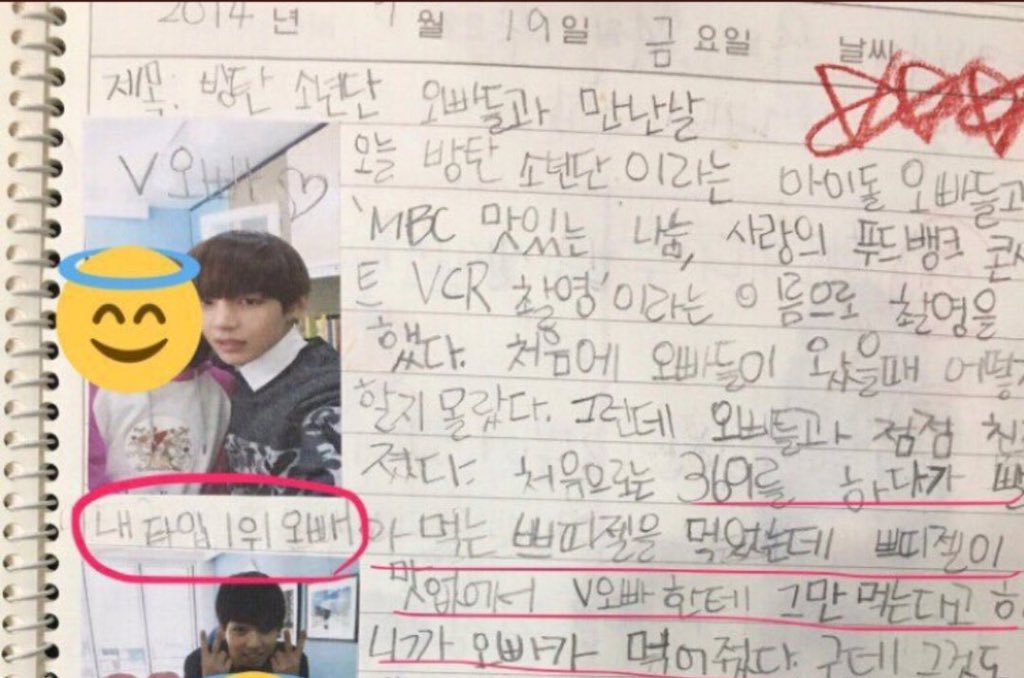 2014 년 9월 19일 금 요일 날씨
제목: 방탄 소년단 오빠들과 만난날
V오빠♡
오늘 방탄 소년단 이라는 아이돌 오빠들과
'MBC 맛있는 나눔, 사랑의 푸드뱅크 콘서
트 VCR 촬영'이라는 이름으로 촬영을
했다. 처음에 오빠들이 왔을때 어떻게
할지 몰랐다. 그런데 오빠들과 점점 친
졌다. 처음으로는 369를 하다가
내 타입 1위 오빠
아 먹는 쁘띠젤을 먹었는데 쁘띠젤이
맛없어서 V오빠한테 그만 먹는다고 하
니까 오빠가 먹어줬다. 근데 그것도